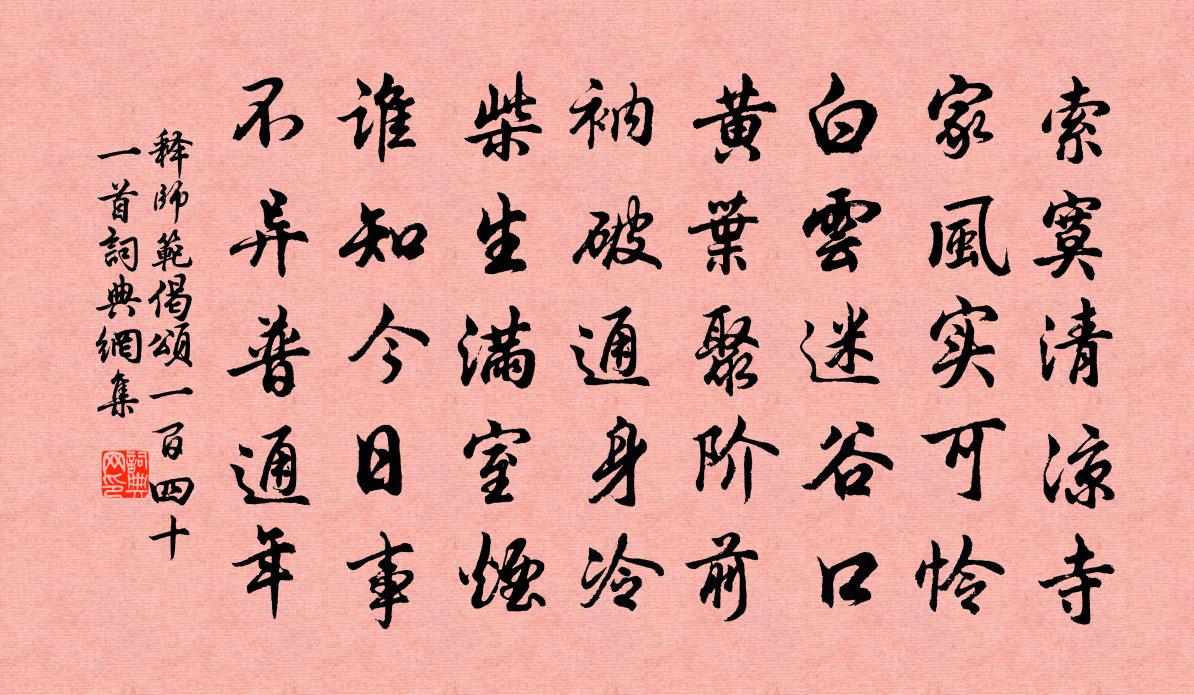 索寞清涼寺
家風实可怜
白雲迷谷口
黄葉聚阶前
衲破通身冷
柴生滿室煙
誰知今日事
不异普通年
释師範偈頌一百四十
一首詞典網集
詞典网印